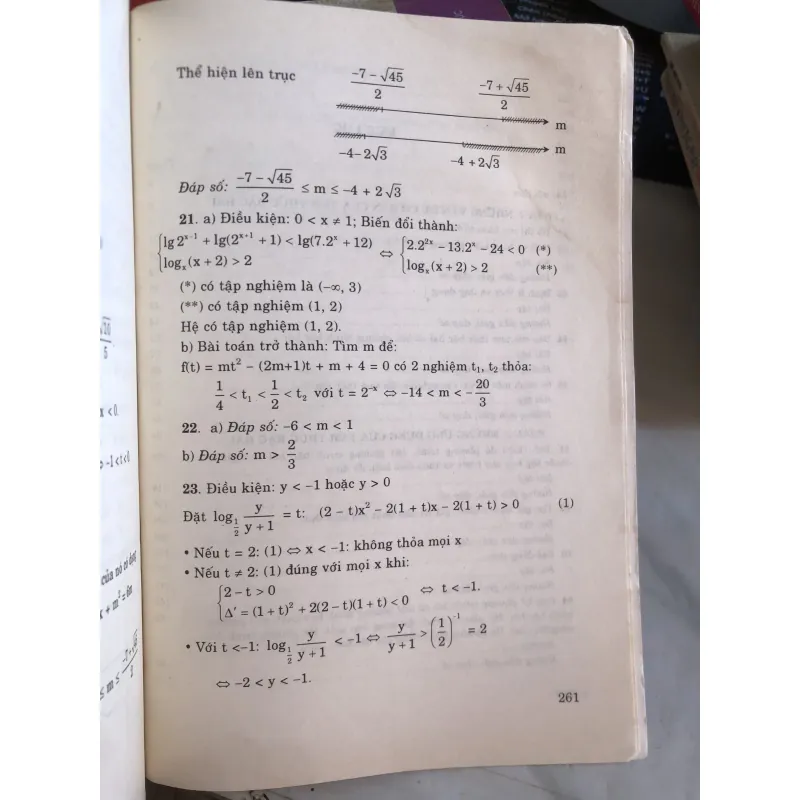 Thể hiện lên trục
(-7 - √45)/2
(-7 + √45)/2
m
m
-4 - 2√3
-4 + 2√3
Đáp số: (-7 - √45)/2 ≤ m ≤ -4 + 2√3
21. a) Điều kiện: 0 < x ≠ 1; Biến đổi thành:
{lg 2^(x-1) + lg(2^(x+1) + 1) < lg(7.2^x + 12) ⇔ {2.2^(2x) - 13.2^x - 24 < 0 (*)
{log_x (x + 2) > 2 {log_x (x + 2) > 2 (**)
(*) có tập nghiệm là (-∞, 3)
(**) có tập nghiệm (1, 2)
Hệ có tập nghiệm (1, 2).
b) Bài toán trở thành: Tìm m để:
f(t) = mt² - (2m+1)t + m + 4 = 0 có 2 nghiệm t₁, t₂ thỏa:
1/4 < t₁ < 1/2 < t₂ với t = 2^(-x) ⇔ -14 < m < -20/3
22. a) Đáp số: -6 < m < 1
b) Đáp số: m > 2/3
23. Điều kiện: y < -1 hoặc y > 0
Đặt log_(1/2) y/(y + 1) = t: (2 - t)x² - 2(1 + t)x - 2(1 + t) > 0 (1)
• Nếu t = 2: (1) ⇔ x < -1: không thỏa mọi x
• Nếu t ≠ 2: (1) đúng với mọi x khi:
{2 - t > 0
{Δ' = (1 + t)² + 2(2 - t)(1 + t) < 0 ⇔ t < -1.
• Với t < -1: log_(1/2) y/(y + 1) < -1 ⇔ y/(y + 1) > (1/2)^(-1) = 2
⇔ -2 < y < -1.
261
√20
5
x < 0
⇔ -1 < t < 0
của nó có
x + m² = 6m
≤ m ≤